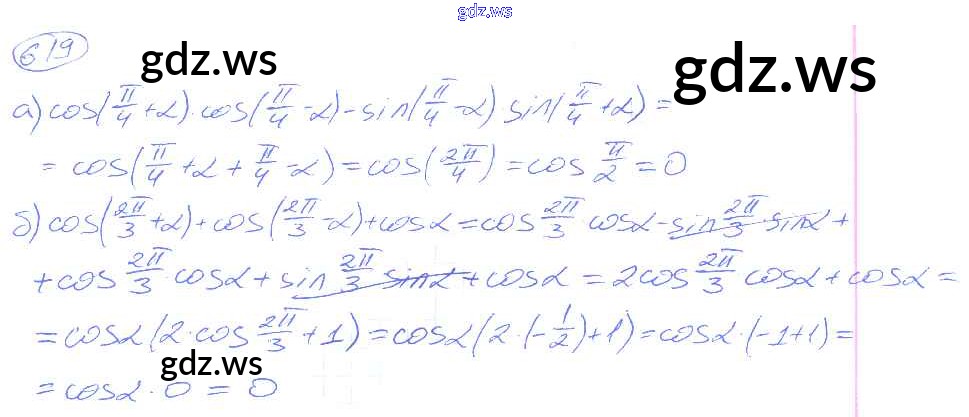 gdz.ws
619
gdz.ws
gdz.ws
а) cos(π/4 + α) · cos(π/4 - α) - sin(π/4 - α) sin(π/4 + α) =
= cos(π/4 + α + π/4 - α) = cos(2π/4) = cos π/2 = 0
б) cos(2π/3 + α) + cos(2π/3 - α) + cosα = cos 2π/3 cosα - sin 2π/3 · sinα +
+ cos 2π/3 · cosα + sin 2π/3 sinα + cosα = 2cos 2π/3 cosα + cosα =
= cosα(2 · cos 2π/3 + 1) = cosα(2 · (-1/2) + 1) = cosα · (-1 + 1) =
gdz.ws
= cosα · 0 = 0